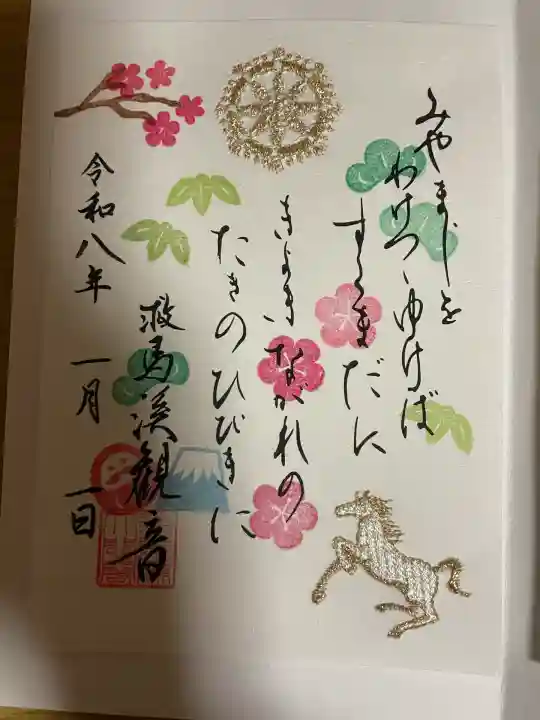 みやまじを
わけつゝゆけば
すくまだに
きよきながれの
たきのひびきに
救馬溪觀音
令和八年 一月 一日